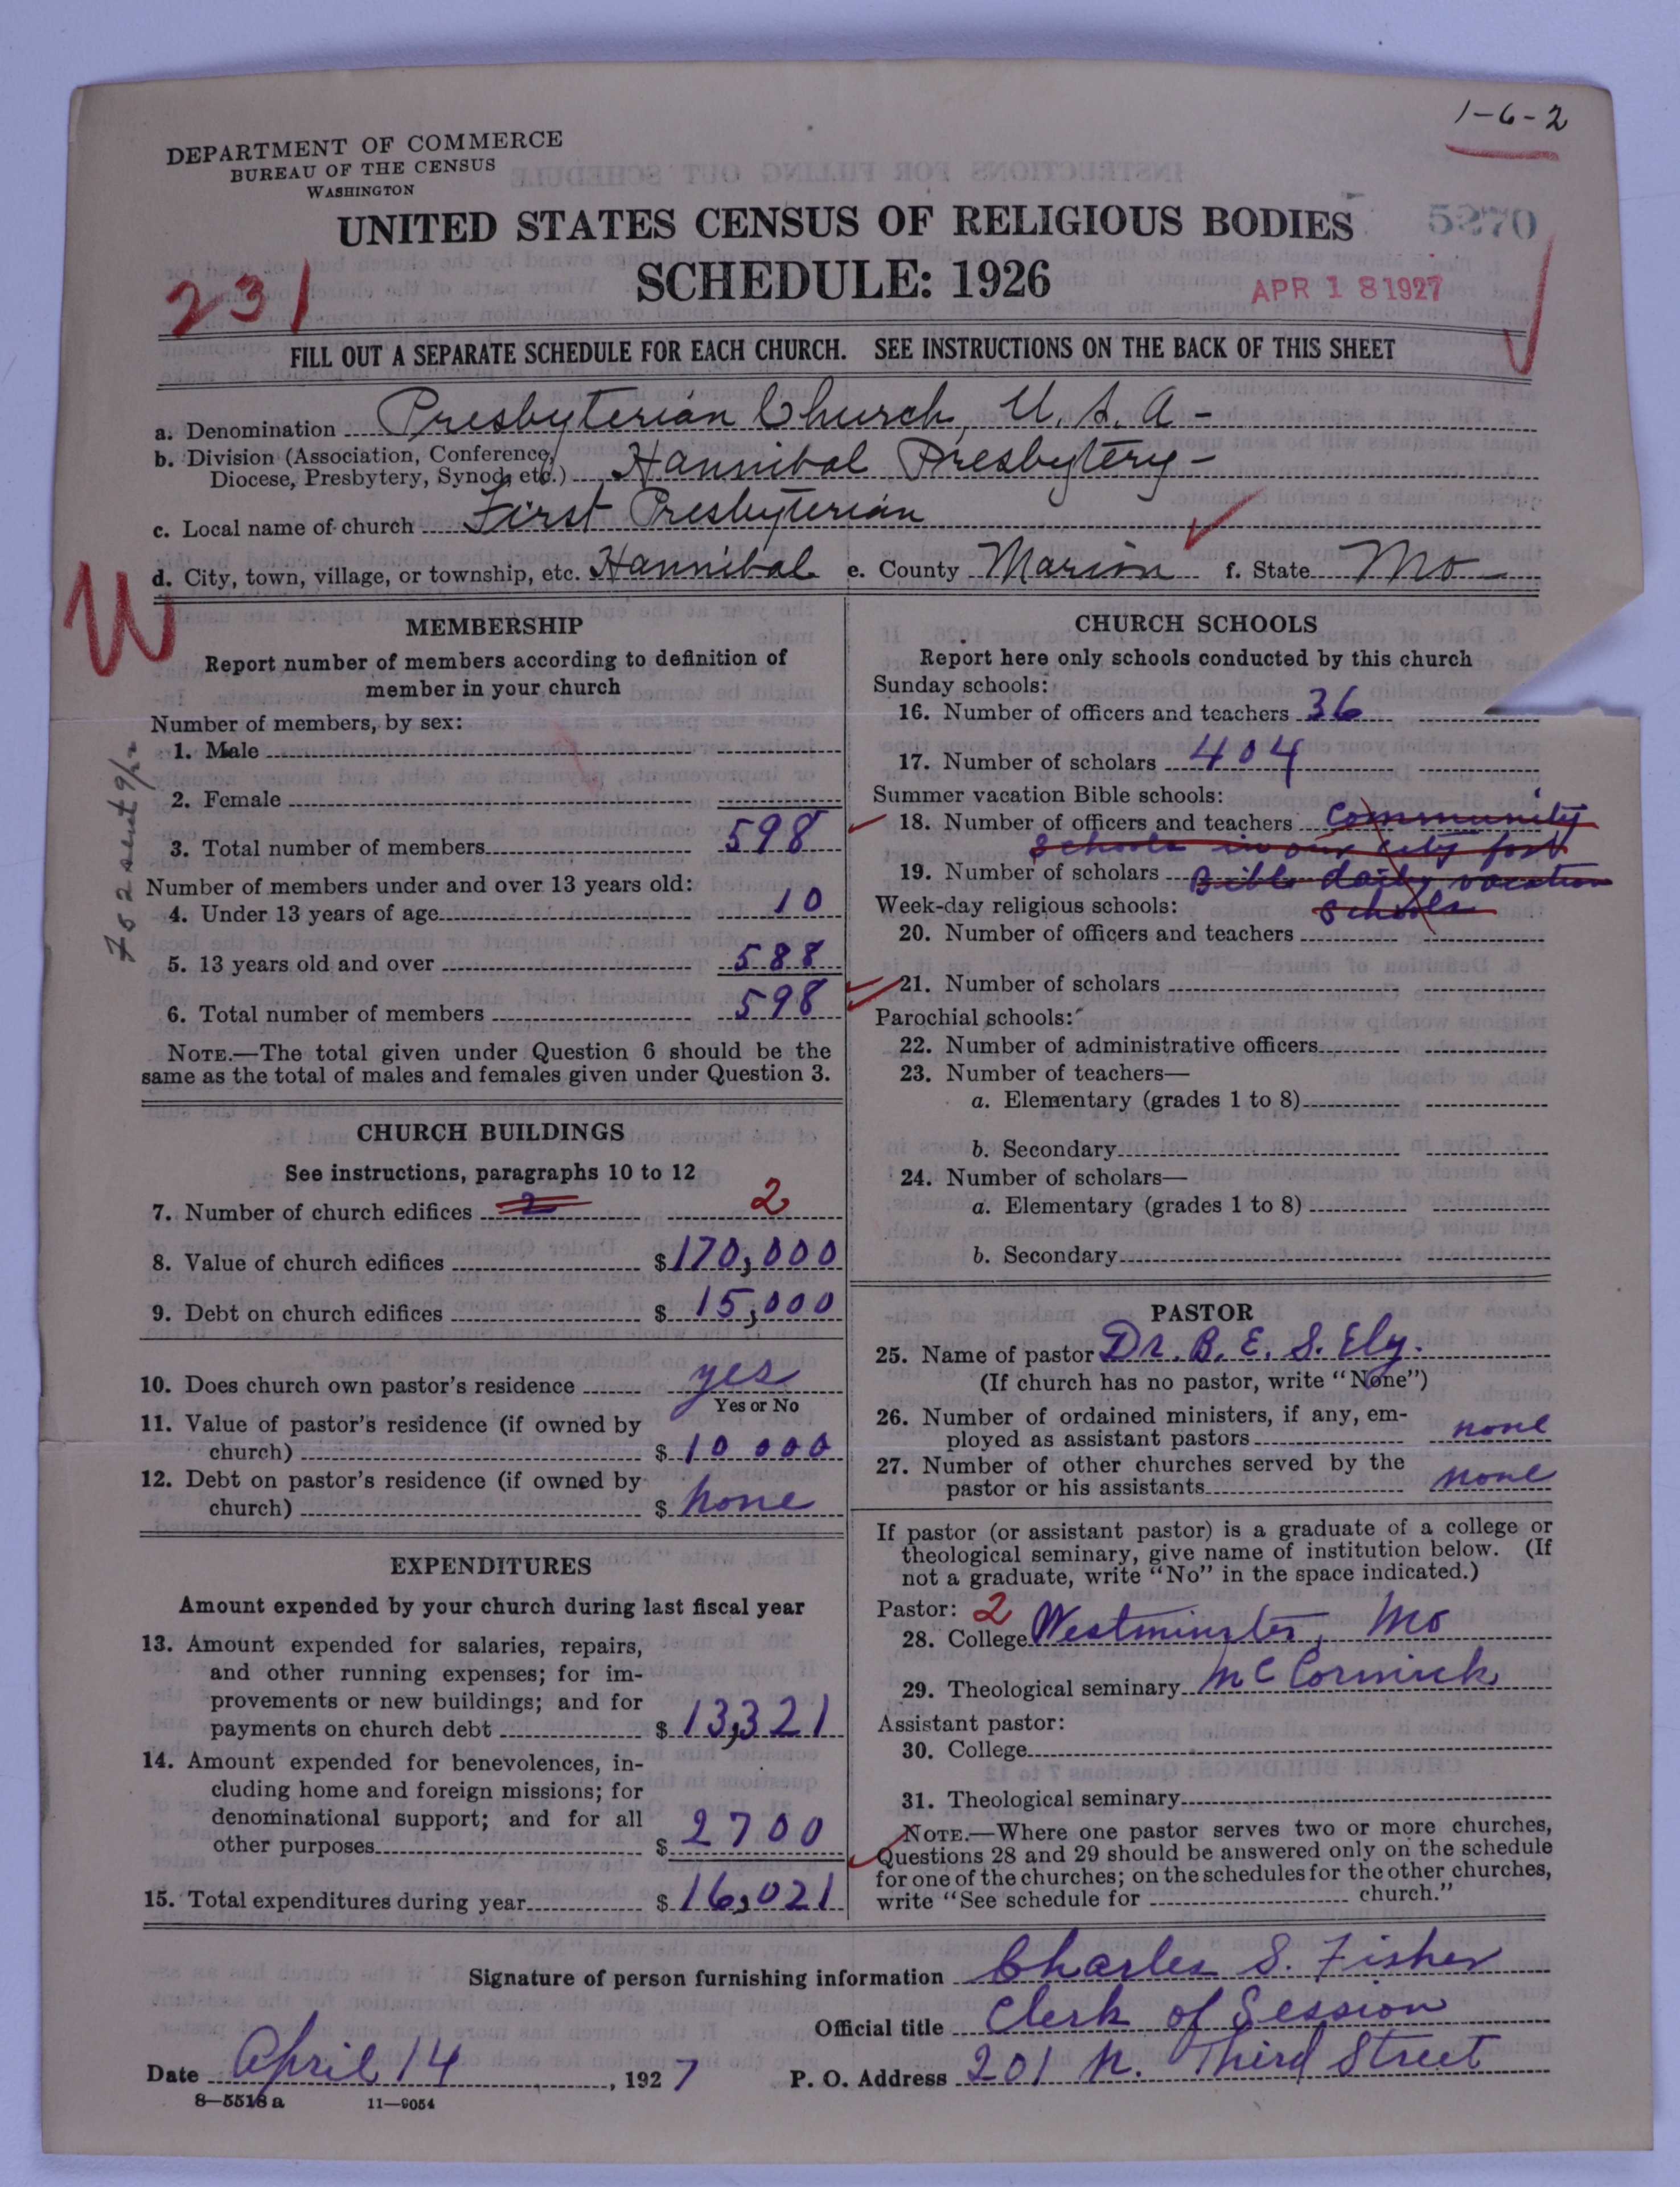 1-6-2
DEPARTMENT OF COMMERCE
BUREAU OF THE CENSUS
WASHINGTON
UNITED STATES CENSUS OF RELIGIOUS BODIES
5270
SCHEDULE: 1926
231
APR 18 1927
FILL OUT A SEPARATE SCHEDULE FOR EACH CHURCH. SEE INSTRUCTIONS ON THE BACK OF THIS SHEET
a. Denomination Presbyterian Church, U. S. A -
b. Division (Association, Conference,
Diocese, Presbytery, Synod, etc.) Hannibal Presbytery -
c. Local name of church First Presbyterian
d. City, town, village, or township, etc. Hannibal e. County Marion f. State Mo -
W
MEMBERSHIP
Report number of members according to definition of
member in your church
Number of members, by sex:
1. Male
2. Female
3. Total number of members 598
Number of members under and over 13 years old:
4. Under 13 years of age 10
5. 13 years old and over 588
6. Total number of members 598
NOTE.—The total given under Question 6 should be the
same as the total of males and females given under Question 3.
CHURCH BUILDINGS
See instructions, paragraphs 10 to 12
7. Number of church edifices 2 2
8. Value of church edifices $170,000
9. Debt on church edifices $ 15,000
10. Does church own pastor's residence yes
Yes or No
11. Value of pastor's residence (if owned by
church) $ 10 000
12. Debt on pastor's residence (if owned by
church) $ none
EXPENDITURES
Amount expended by your church during last fiscal year
13. Amount expended for salaries, repairs,
and other running expenses; for im-
provements or new buildings; and for
payments on church debt $ 13,321
14. Amount expended for benevolences, in-
cluding home and foreign missions; for
denominational support; and for all
other purposes $ 2700
15. Total expenditures during year $ 16,021
CHURCH SCHOOLS
Report here only schools conducted by this church
Sunday schools:
16. Number of officers and teachers 36
17. Number of scholars 404
Summer vacation Bible schools:
18. Number of officers and teachers Community
Schools in our city for
19. Number of scholars Bible daily vacation
Week-day religious schools: Schools
20. Number of officers and teachers
21. Number of scholars
Parochial schools:
22. Number of administrative officers
23. Number of teachers—
a. Elementary (grades 1 to 8)
b. Secondary
24. Number of scholars—
a. Elementary (grades 1 to 8)
b. Secondary
PASTOR
25. Name of pastor Dr. B. E. S. Ely.
(If church has no pastor, write "None")
26. Number of ordained ministers, if any, em-
ployed as assistant pastors none
27. Number of other churches served by the
pastor or his assistants none
If pastor (or assistant pastor) is a graduate of a college or
theological seminary, give name of institution below. (If
not a graduate, write "No" in the space indicated.)
Pastor: 2
28. College Westminster, Mo
29. Theological seminary McCormick
Assistant pastor:
30. College
31. Theological seminary
NOTE.—Where one pastor serves two or more churches,
Questions 28 and 29 should be answered only on the schedule
for one of the churches; on the schedules for the other churches,
write "See schedule for church."
Signature of person furnishing information Charles S. Fisher
Official title Clerk of Session
Date April 14, 1927 P. O. Address 201 N. Third Street
8—5518 a 11—9054